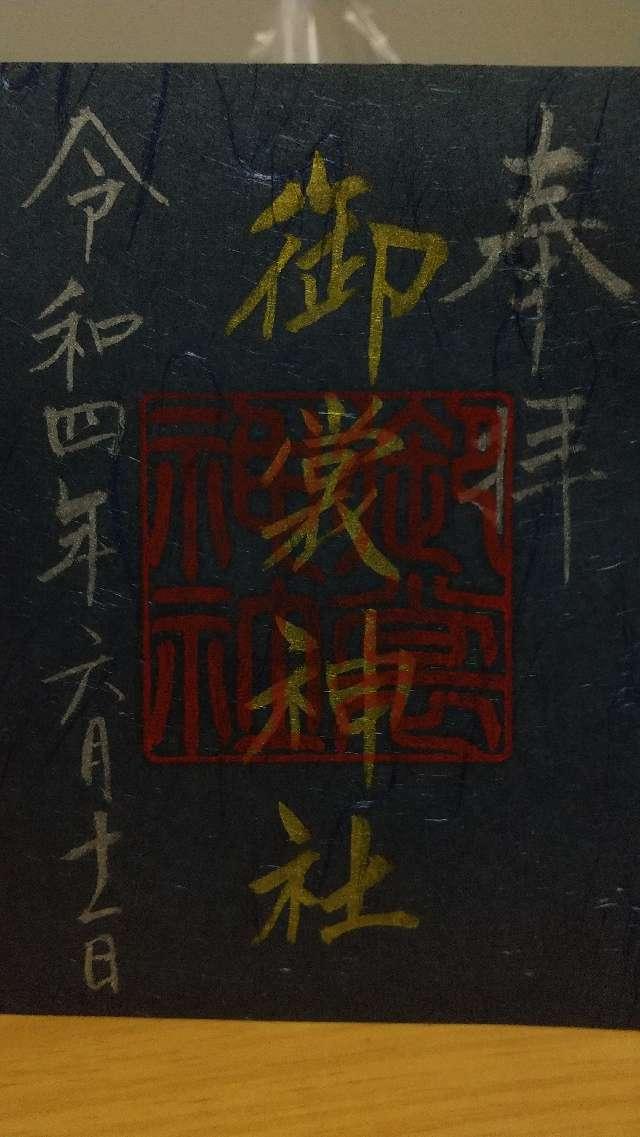 奉拝
御裳神社
御裳神社
令和四年六月十一日